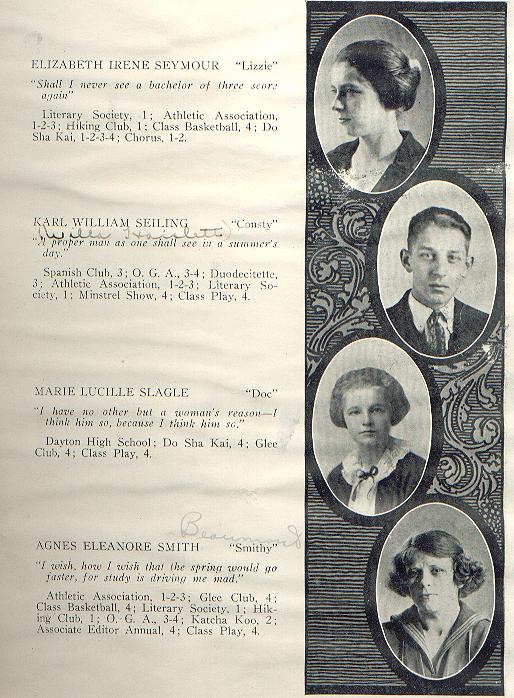 ELIZABETH IRENE SEYMOUR "Lizzie"
"Shall I never see a bachelor of three score
again"
Literary Society, 1; Athletic Association,
1-2-3; Hiking Club, 1; Class Basketball, 4; Do
Sha Kai, 1-2-3-4; Chorus, 1-2.
KARL WILLIAM SEILING "Consty"
"A proper man as one shall see in a summer's
day."
Spanish Club, 3; O. G. A., 3-4; Duodecitette,
3; Athletic Association, 1-2-3; Literary So-
ciety, 1; Minstrel Show, 4; Class Play, 4.
MARIE LUCILLE SLAGLE "Doc"
"I have no other but a woman's reason—I
think him so, because I think him so."
Dayton High School; Do Sha Kai, 4; Glee
Club, 4; Class Play, 4.
Beaumont
AGNES ELEANORE SMITH "Smithy"
"I wish, how I wish that the spring would go
faster, for study is driving me mad."
Athletic Association, 1-2-3; Glee Club, 4;
Class Basketball, 4; Literary Society, 1; Hik-
ing Club, 1; O. G. A., 3-4; Katcha Koo, 2;
Associate Editor Annual, 4; Class Play, 4.